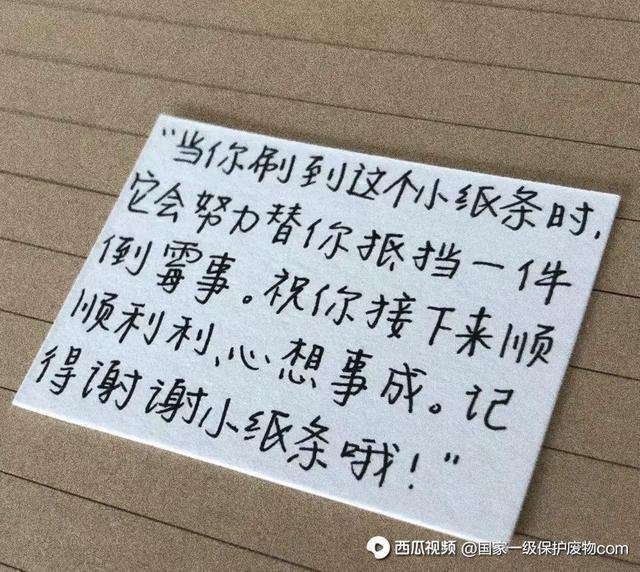 “当你刷到这个小纸条时,
它会努力替你抵挡一件
倒霉事。祝你接下来顺
顺利利、心想事成。记
得谢谢小纸条哦！”
西瓜视频 @国家一级保护废物com